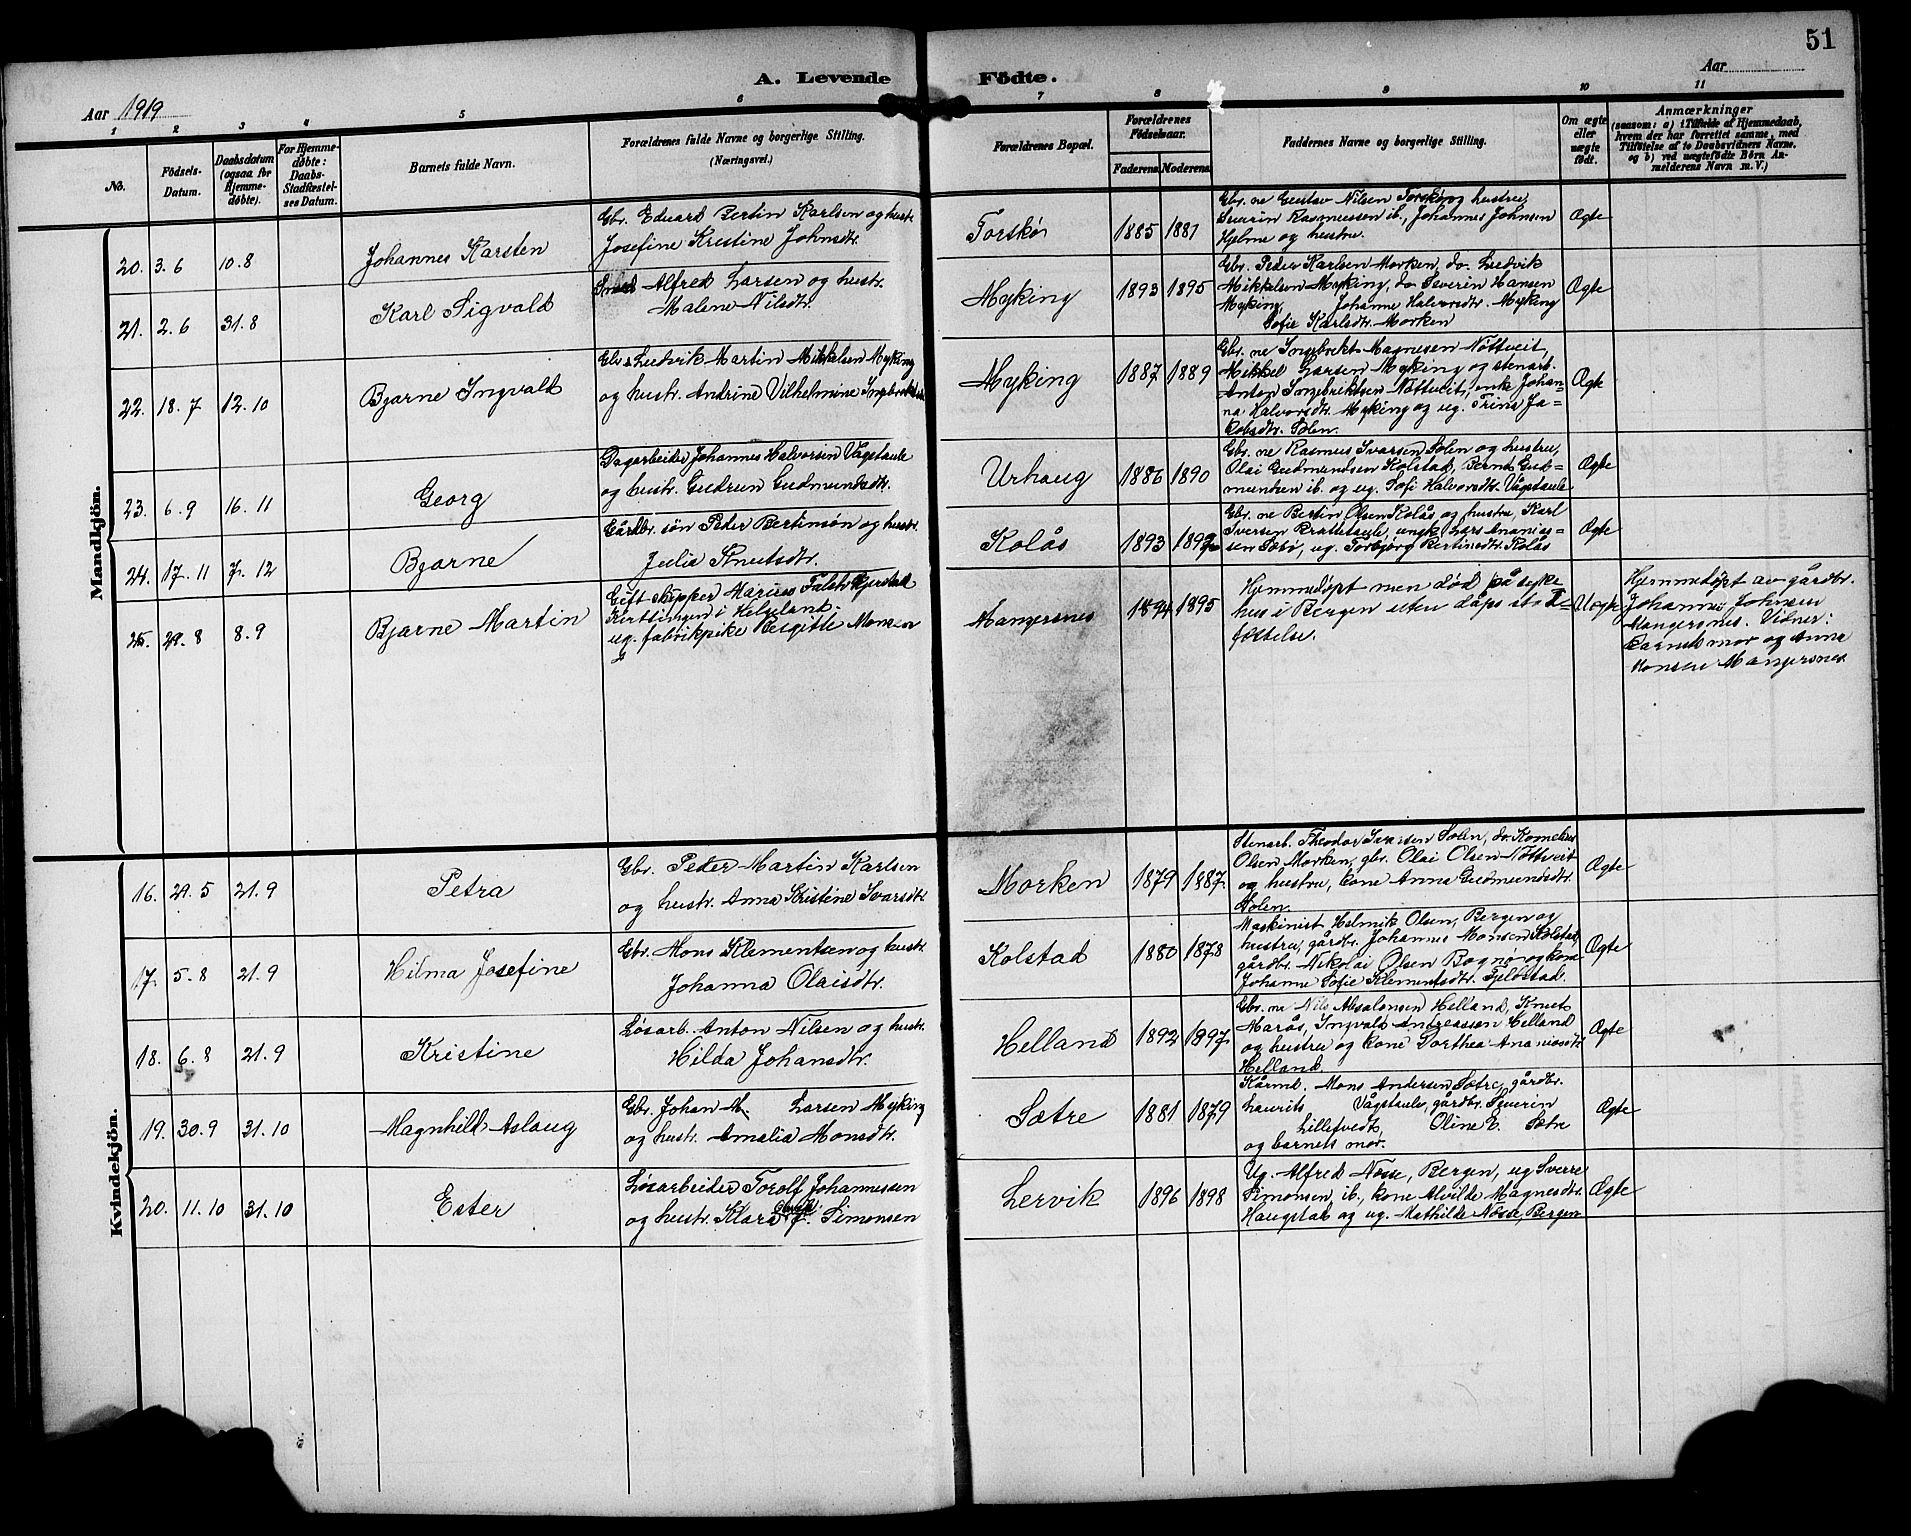 51
A. Levende Födte.
Aar 1919
Aar
1 2 3 4 5 6 7 8 9 10 11
No.
Födsels-Datum.
Daabsdatum (ogsaa for Hjemmedøbte).
For Hjemmedøbte: Daabs-Stadfæstelses Datum.
Barnets fulde Navn.
Forældrenes fulde Navne og borgerlige Stilling.
(Næringsvei.)
Forældrenes Bopæl.
Forældrenes Födselsaar.
Faderens Moderens
Faddernes Navne og borgerlige Stilling.
Om ægte eller uægte født.
Anmærkninger
(saasom: a) i Tilfælde af Hjemmedaab,
hvem der har forrettet samme, med
Tilföielse af to Daabsvidners Navne,
og b) ved uægtefödte Börn An-
melderens Navn m. V.)
Mandkjön.
20. 3.6 10.8
Johannes Karsten
Gbr. Eduard Bertin Karlsen og hustr.
Josefine Kristine Johnsdtr.
Torskø
1885 1881
Gbr. ne Gustav Nilsen Torskø og hustrue,
Severin Rasmussen ib., Johannes Johnsen
Hjelme og hustru.
Ægte
21. 2.6 31.8
Karl Sigvald
Alfred Larsen og hustr.
Malene Nilsdtr.
Myking
1893 1895
Gbr. Peder Karlsen Morken, do. Ludvik
Mikkelsen Myking, do Severin Hansen
Myking, Johanne Halvorsdtr. Myking
Sofie Karlsdtr. Morken
Ægte
22. 18.7 12.10
Bjarne Ingvald
Gbr. Ludvik Martin Mikkelsen Myking
og hustr. Andrine Vilhelmine
Myking
1887 1889
Gbr. ne Ingebrikt Magnesen Nöttveit,
Mikkel Larsen Myking og stenarb.
Anton Ingebriktsen Nöttveit, enke Johan-
na Halvorsdtr. Myking og ug. Trina Ja-
kobsdtr. Solen.
Ægte
23. 6.9 16.11
Georg
Dagarbeider Johannes Halvorsen Vågstaule
og hustr. Gudrun Gudmundsdtr.
Urhaug
1886 1890
Gbr. ne Rasmus Ivarsen Solen og hustru,
Olai Gudmundsen Kolstad, Bernt Gud-
mundsen ib. og ug. Sofi Halvorsdtr. Vågstaule
Ægte
24. 17.11 7.12
Bjarne
Gårdbr. søn Peder Bertinsön og hustr.
Julia Knutsdtr.
Kolås
1893
Gbr. ne Bertin Olsen Kolås og hustru, Karl
Iversen Brattetaule, ungk. Lars Ananias-
sen Sæbø, ug. Torbjørg Bertinsdtr. Kolås
Ægte
25. 29.8 8.9
Bjarne Martin
Gift skipper Marius Falch
i Helgeland.
ug. fabrikpike Birgitte
Mangersnes
1894 1895
Hjemmedøpt men død på syke-
hus i Bergen uten dåps stad-
fæstelse.
Uegte
Hjemmedøpt av gårdbr.
Johannes Johnsen
Mangersnes. Vidner:
Barnets mor og Anna
Monsen Mangersnes
Kvindekjön.
16. 29.5 21.9
Petra
Gbr. Peder Martin Karlsen
og hustr. Anna Kristine Ivarsdtr.
Morken
1879 1887.
Stenarb. Theodor Ivarsen Solen, do. Kornelius
Olsen Morken, gbr. Olai Olsen Nöttveit
og hustru, kone Anna Gudmundsdtr.
Solen.
Ægte
17. 5.8 21.9
Hilma Josefine
Gbr. Mons Klementsen og hustr.
Johanna Olaisdtr.
Kolstad
1880 1878
Maskinist Helmik Olsen, Bergen og
hustru, gårdbr. Johannes Monsen Kolstad,
gårdbr. Nikolai Olsen Bognø og kone
Johanne Sofie Klementsdtr. Fjeldstad.
Ægte
18. 6.8 21.9
Kristine
Løsarb. Anton Nilsen og hustr.
Hilda Johansdtr.
Helland
1892 1897.
Gbr. ne Nils Absalonsen Helland, Knut
Marås, Ingvald Andreassen Helland
og hustru og kone Dorthea Ananiasdtr
Helland
Ægte
19. 30.9 31.10
Magnhild Aslaug
Gbr. Johan M. Larsen Myking
og hustr. Amalia Monsdtr.
Sætre
1881 1879
Kårmd. Mons Andersen Sætre, gårdbr.
Laurits Vågstaule, gårdbr. Severin
Lilletvedt, Oline E. Sætre
og barnets mor.
Ægte
20. 11.10 31.10
Ester
Løsarbeider Torolf Johannessen
og hustr. Klara J. Simonsen
Lervik
1896 1898
Ug. Alfred Nesse, Bergen, ug Sverre
Simonsen, ib., kone Alvilde Magnesdtr.
Haugstad og ug. Mathilde Nesse, Bergen
Ægte